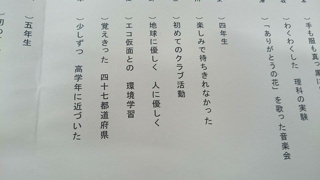 手も服も真っ黒に
）わくわくした　理科の実験
）「ありがとうの花」を歌った音楽会
四年生
）楽しみで待ちきれなかった
）初めてのクラブ活動
）地球に優しく　人に優しく
）エコ仮面との　環境学習
）覚えきった　四十七都道府県
）少しずつ　高学年に近づいた
五年生